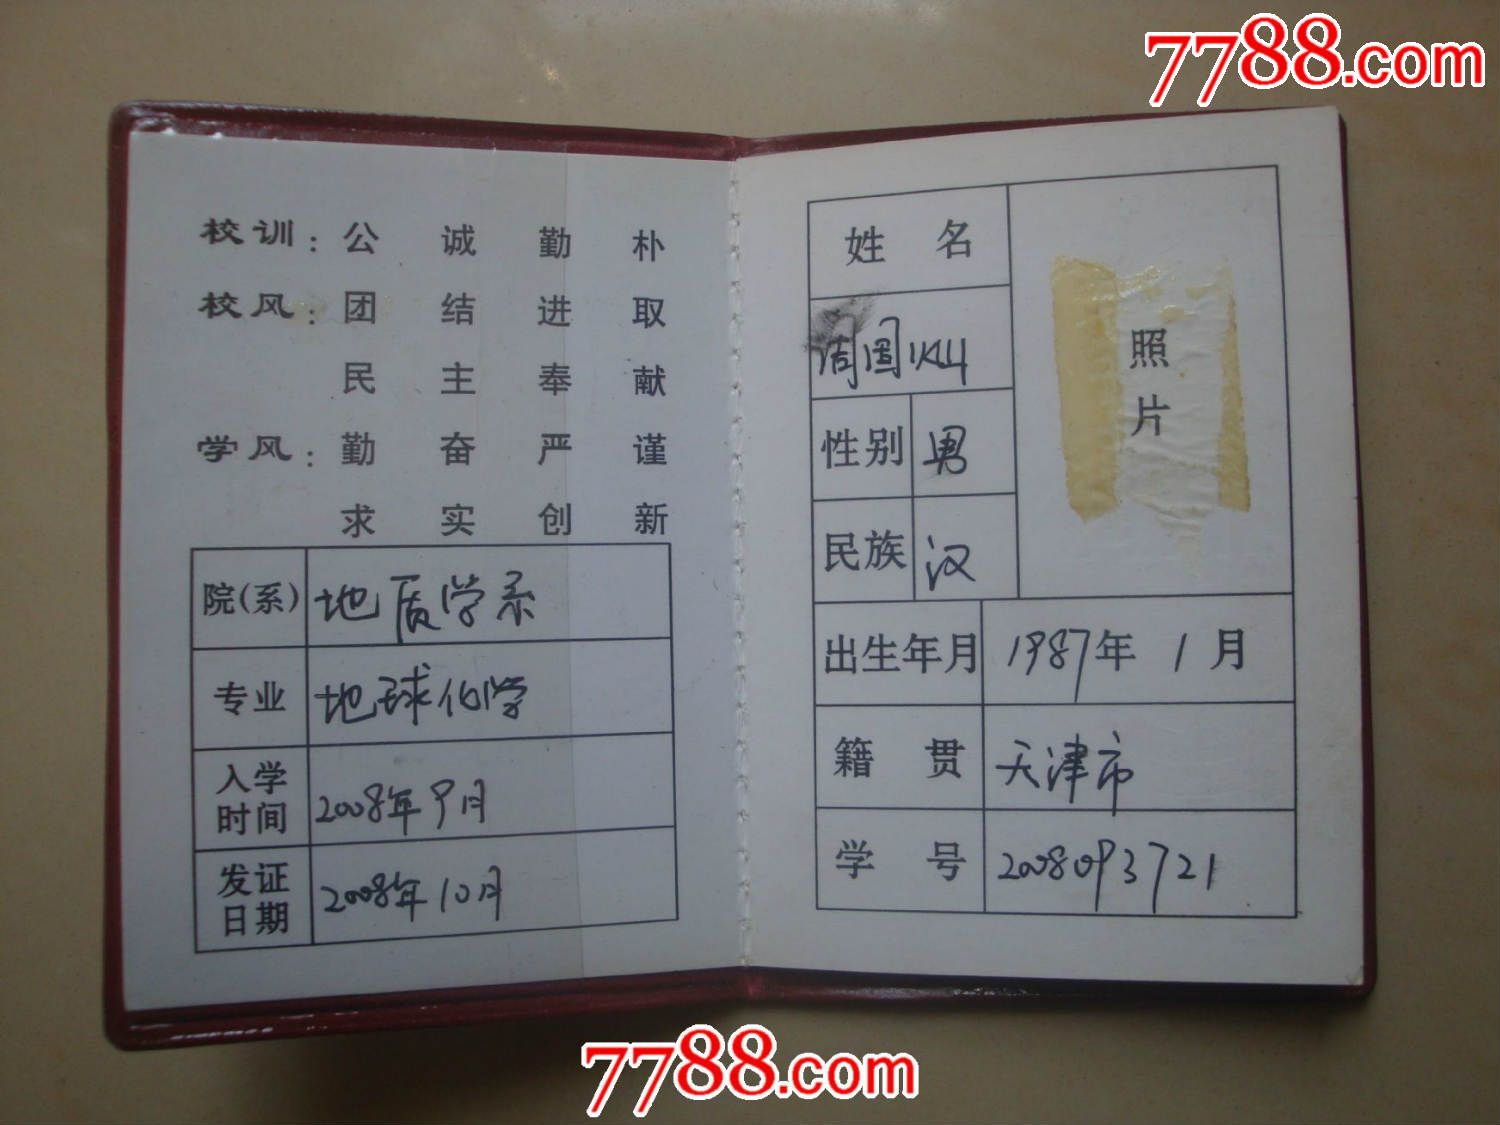 7788.com
校训：公诚勤朴
校风：团结进取
民主奉献
学风：勤奋严谨
求实创新
院(系) 地质学系
专业 地球化学
入学时间 2008年9月
发证日期 2008年10月
姓名
周国灿
照片
性别 男
民族 汉
出生年月 1987年1月
籍贯 天津市
学号 2008093721
7788.com